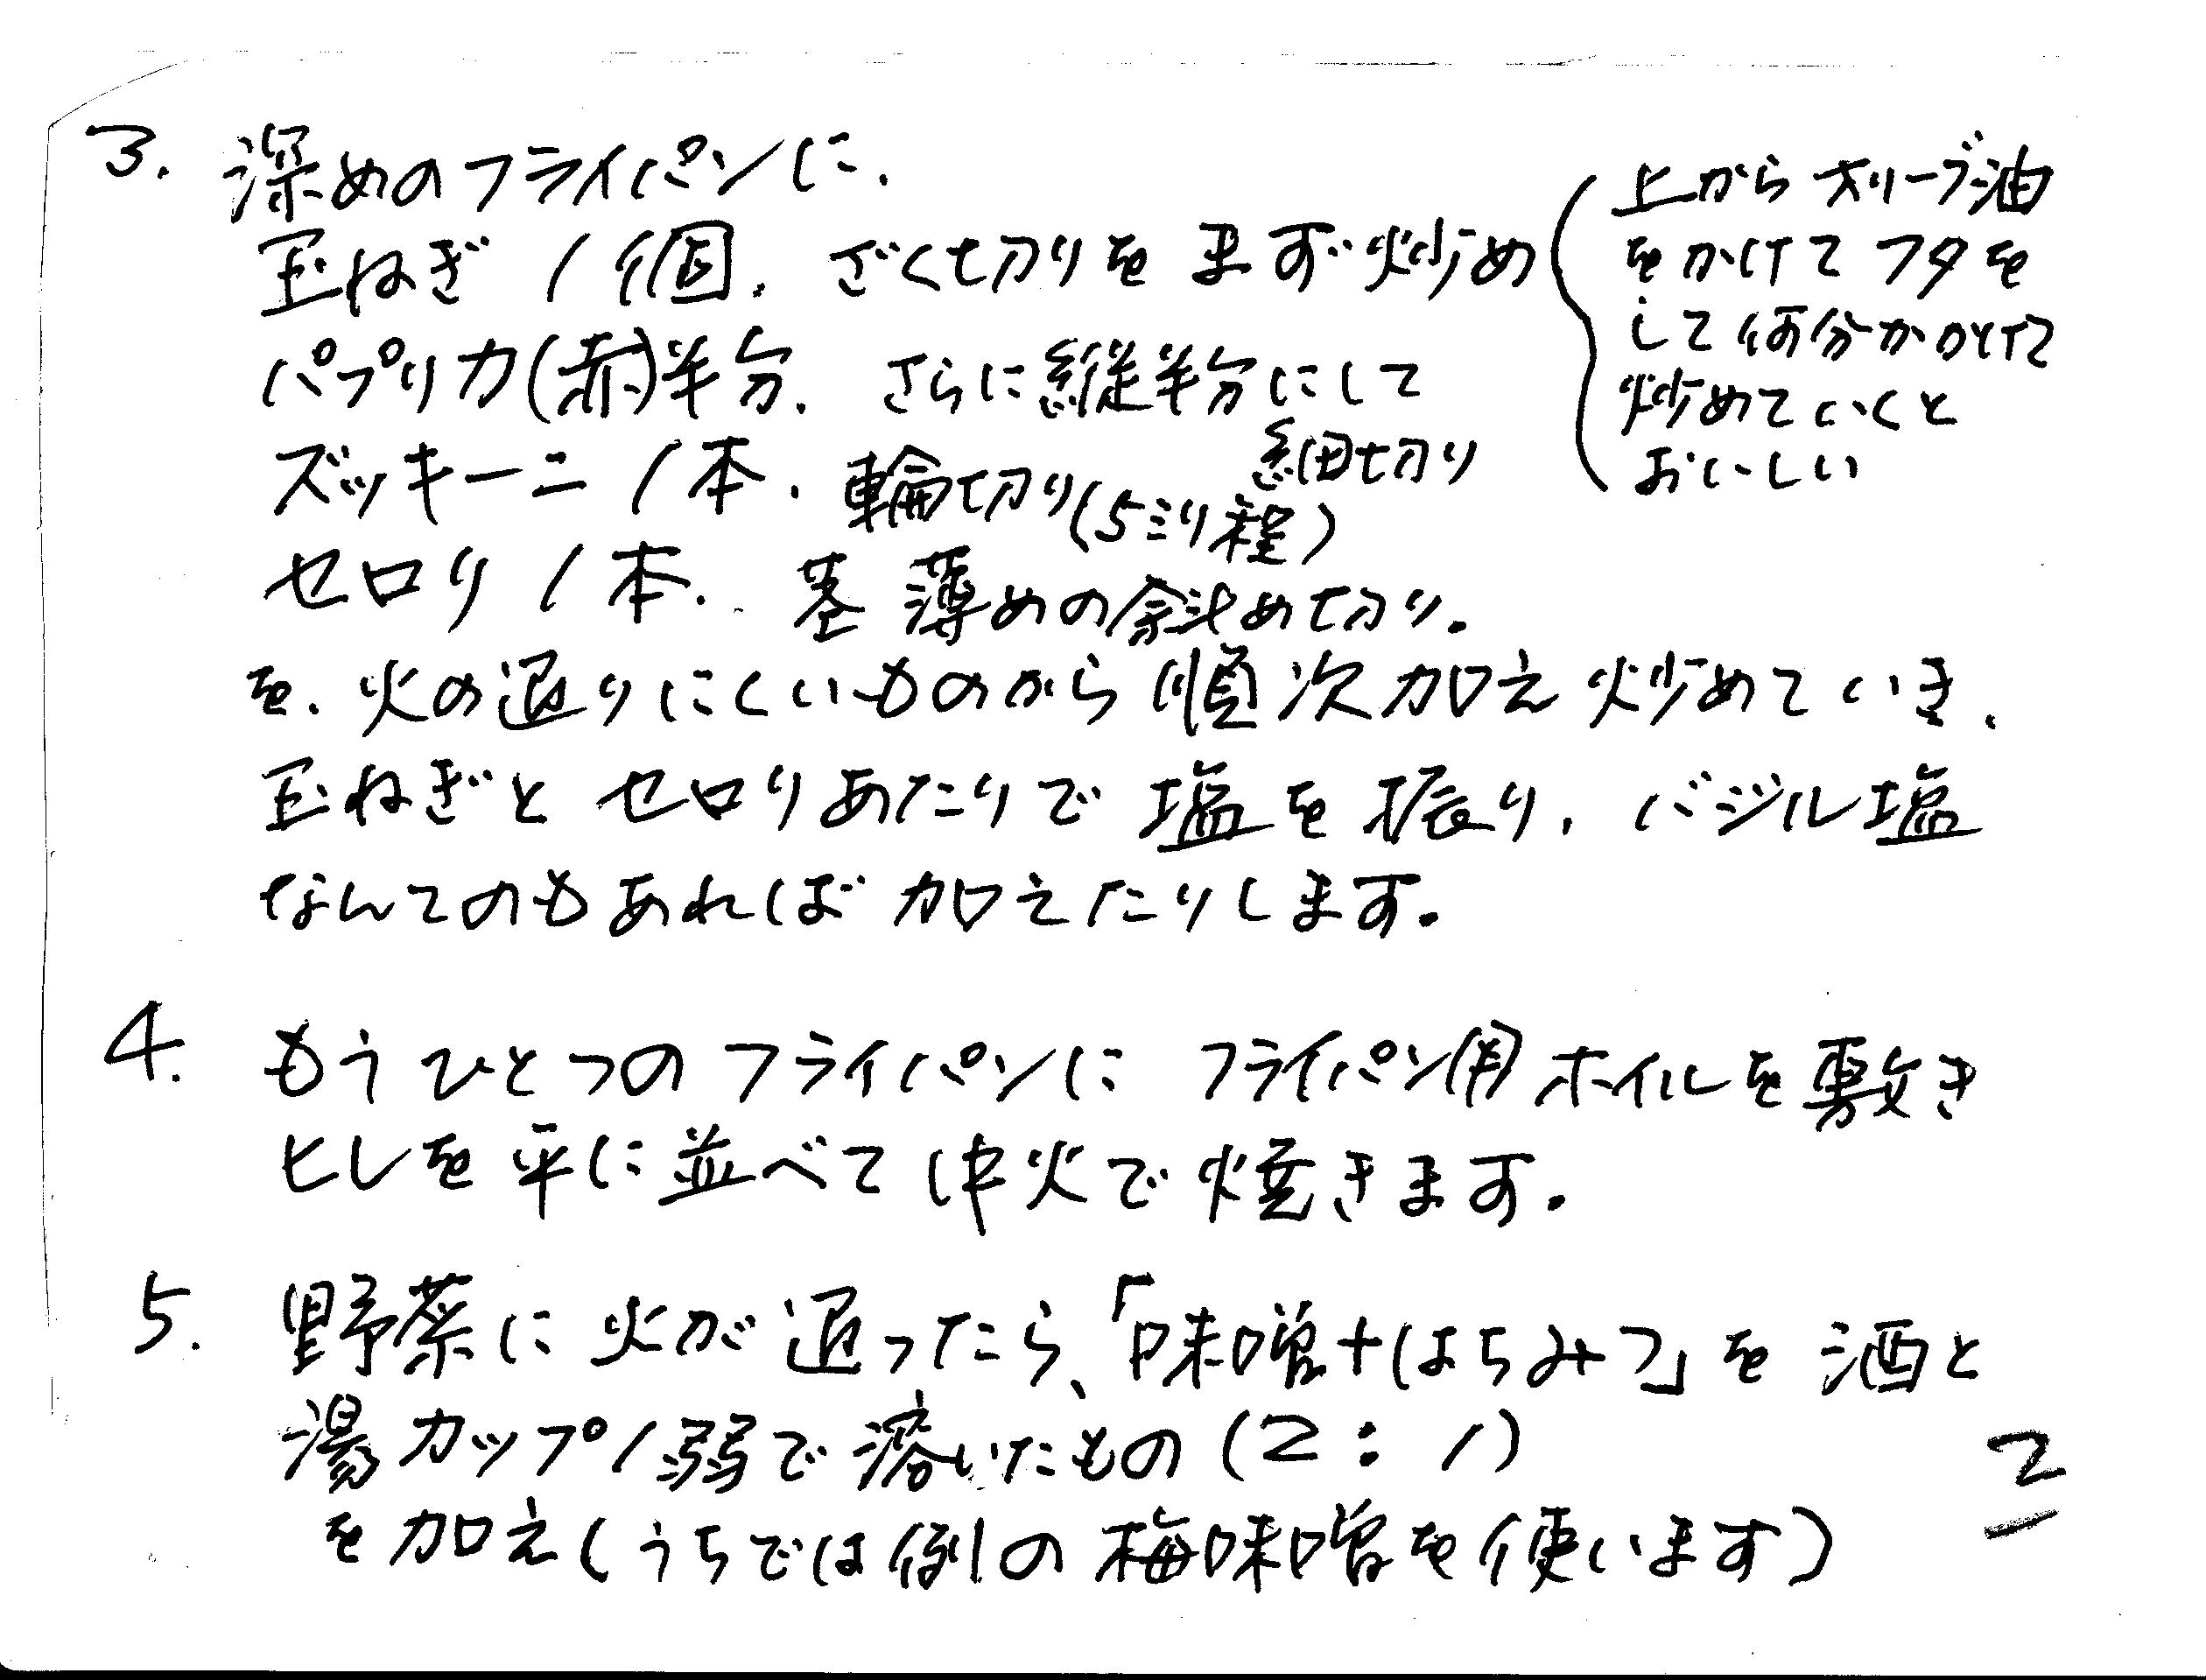 3. 深めのフライパンに、
玉ねぎ 1個、ざく切りをまず炒め
(上からオリーブ油
をかけてフタを
して何分かかけて
炒めていくと
おいしい
パプリカ(赤)半分、さらに縦半分にして
細切り
ズッキーニ 1本、輪切り(5ミリ程)
セロリ 1本、茎 薄めの斜め切り。
を、火の通りにくいものから順次加え炒めていき、
玉ねぎとセロリあたりで塩を振り、バジル塩
なんてのもあれば加えたりします。
4. もうひとつのフライパンにフライパン用ホイルを敷き
ヒレを平に並べて中火で焼きます。
5. 野菜に火が通ったら、「味噌+はちみつ」を酒と
湯カップ1弱で溶いたもの(2:1)
を加え(うちでは例の梅味噌を使います)
2